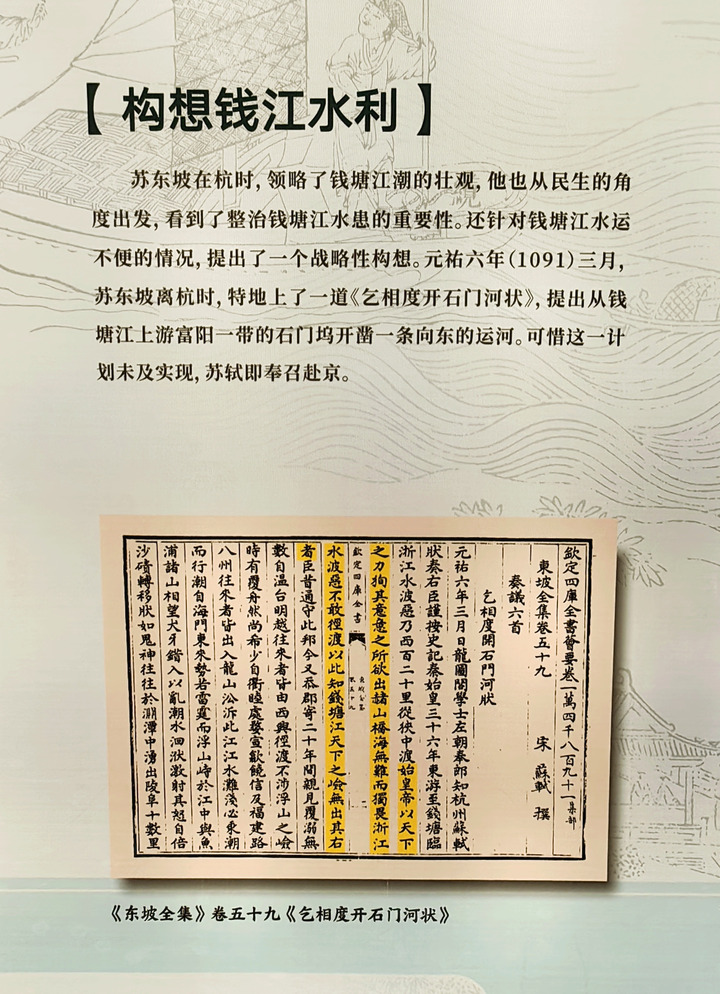 【构想钱江水利】
苏东坡在杭时,领略了钱塘江潮的壮观,他也从民生的角
度出发,看到了整治钱塘江水患的重要性。还针对钱塘江水运
不便的情况,提出了一个战略性构想。元祐六年(1091)三月,
苏东坡离杭时,特地上了一道《乞相度开石门河状》,提出从钱
塘江上游富阳一带的石门坞开凿一条向东的运河。可惜这一计
划未及实现,苏轼即奉召赴京。
欽定四庫全書薈要卷一萬四千八百九十一集部
東坡全集卷五十九 宋 蘇軾 撰
奏議六首
乞相度開石門河狀
元祐六年三月日龍圖閣學士左朝奉郎知杭州蘇軾
狀奏右臣謹按史記秦始皇三十六年東游至錢塘臨
浙江水波惡乃西百二十里從狹中渡始皇帝以天下
之力徇其意意之所欲出赭山橋海無難而獨畏浙江
欽定四庫全書
水波惡不敢徑渡以此知錢塘江天下之嶮無出其右
者臣昔通守此邦今又忝郡寄二十年間親見覆溺無
數自溫台明越往來者皆由西興徑渡不涉浮山之嶮
時有覆舟然尚希少自衢睦處婺宣歙饒信及福建路
八州往來者皆出入龍山沿泝此江江水灘淺必乘潮
而行潮自海門東來勢若雷霆而浮山峙於江中與魚
浦諸山相望犬牙錯入以亂潮水洄洑激射其怒自倍
沙磧轉移狀如鬼神往往於淵潭中湧出陵阜十數里
《东坡全集》卷五十九《乞相度开石门河状》